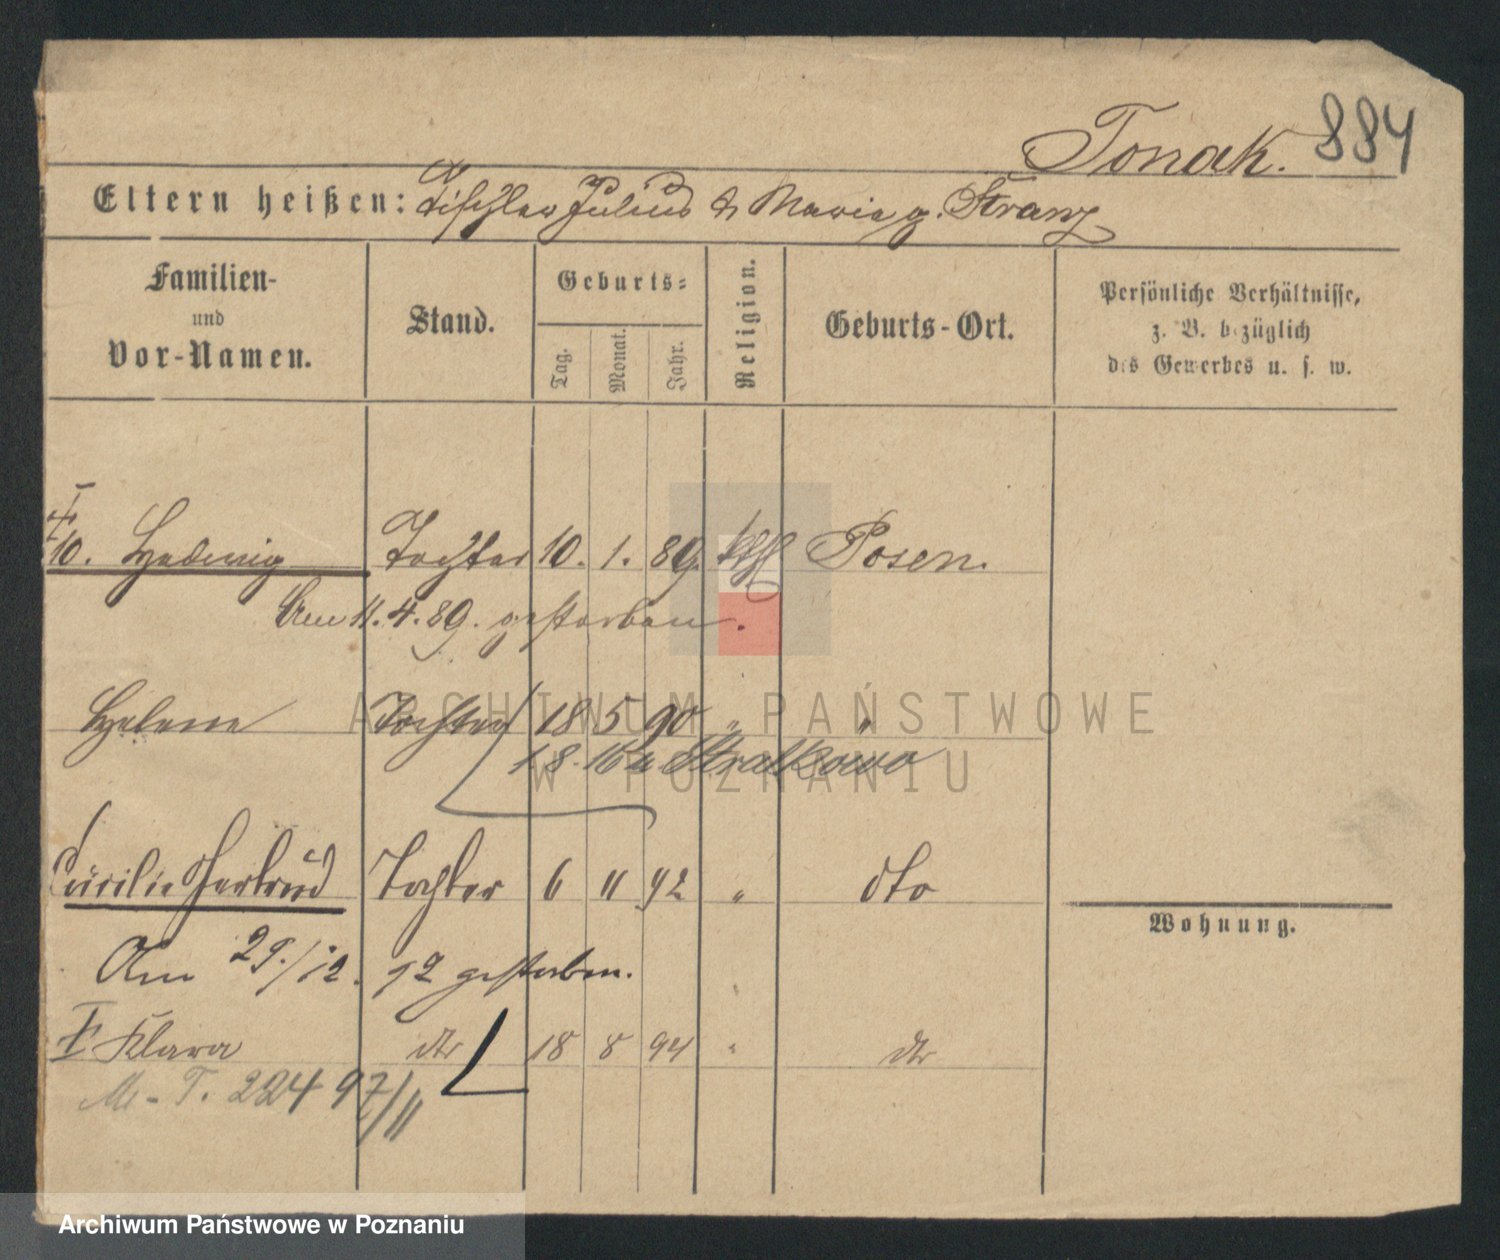 Tonak. 884
Eltern heißen: Tischler Julius & Maria g. Stranz
Familien-
und
Vor-Namen.
Stand.
Geburts-
Tag.
Monat.
Jahr.
Religion.
Geburts-Ort.
Persönliche Verhältnisse,
z. B. bezüglich
des Gewerbes u. s. w.
10. Hedwig Tochter 10. 1. 89. kth Posen.
Am 11. 4. 89. gestorben.
Helene Tochter 18 5 90 " "
18. Stralkowo
Cäcilie Gertrud Tochter 6 11 92 " dto
Wohnung.
Am 29./12. 92 gestorben.
Klara dto 18 8 94 " dto
M.-T. 224 97/11
ARCHIWUM PAŃSTWOWE
W POZNANIU
Archiwum Państwowe w Poznaniu